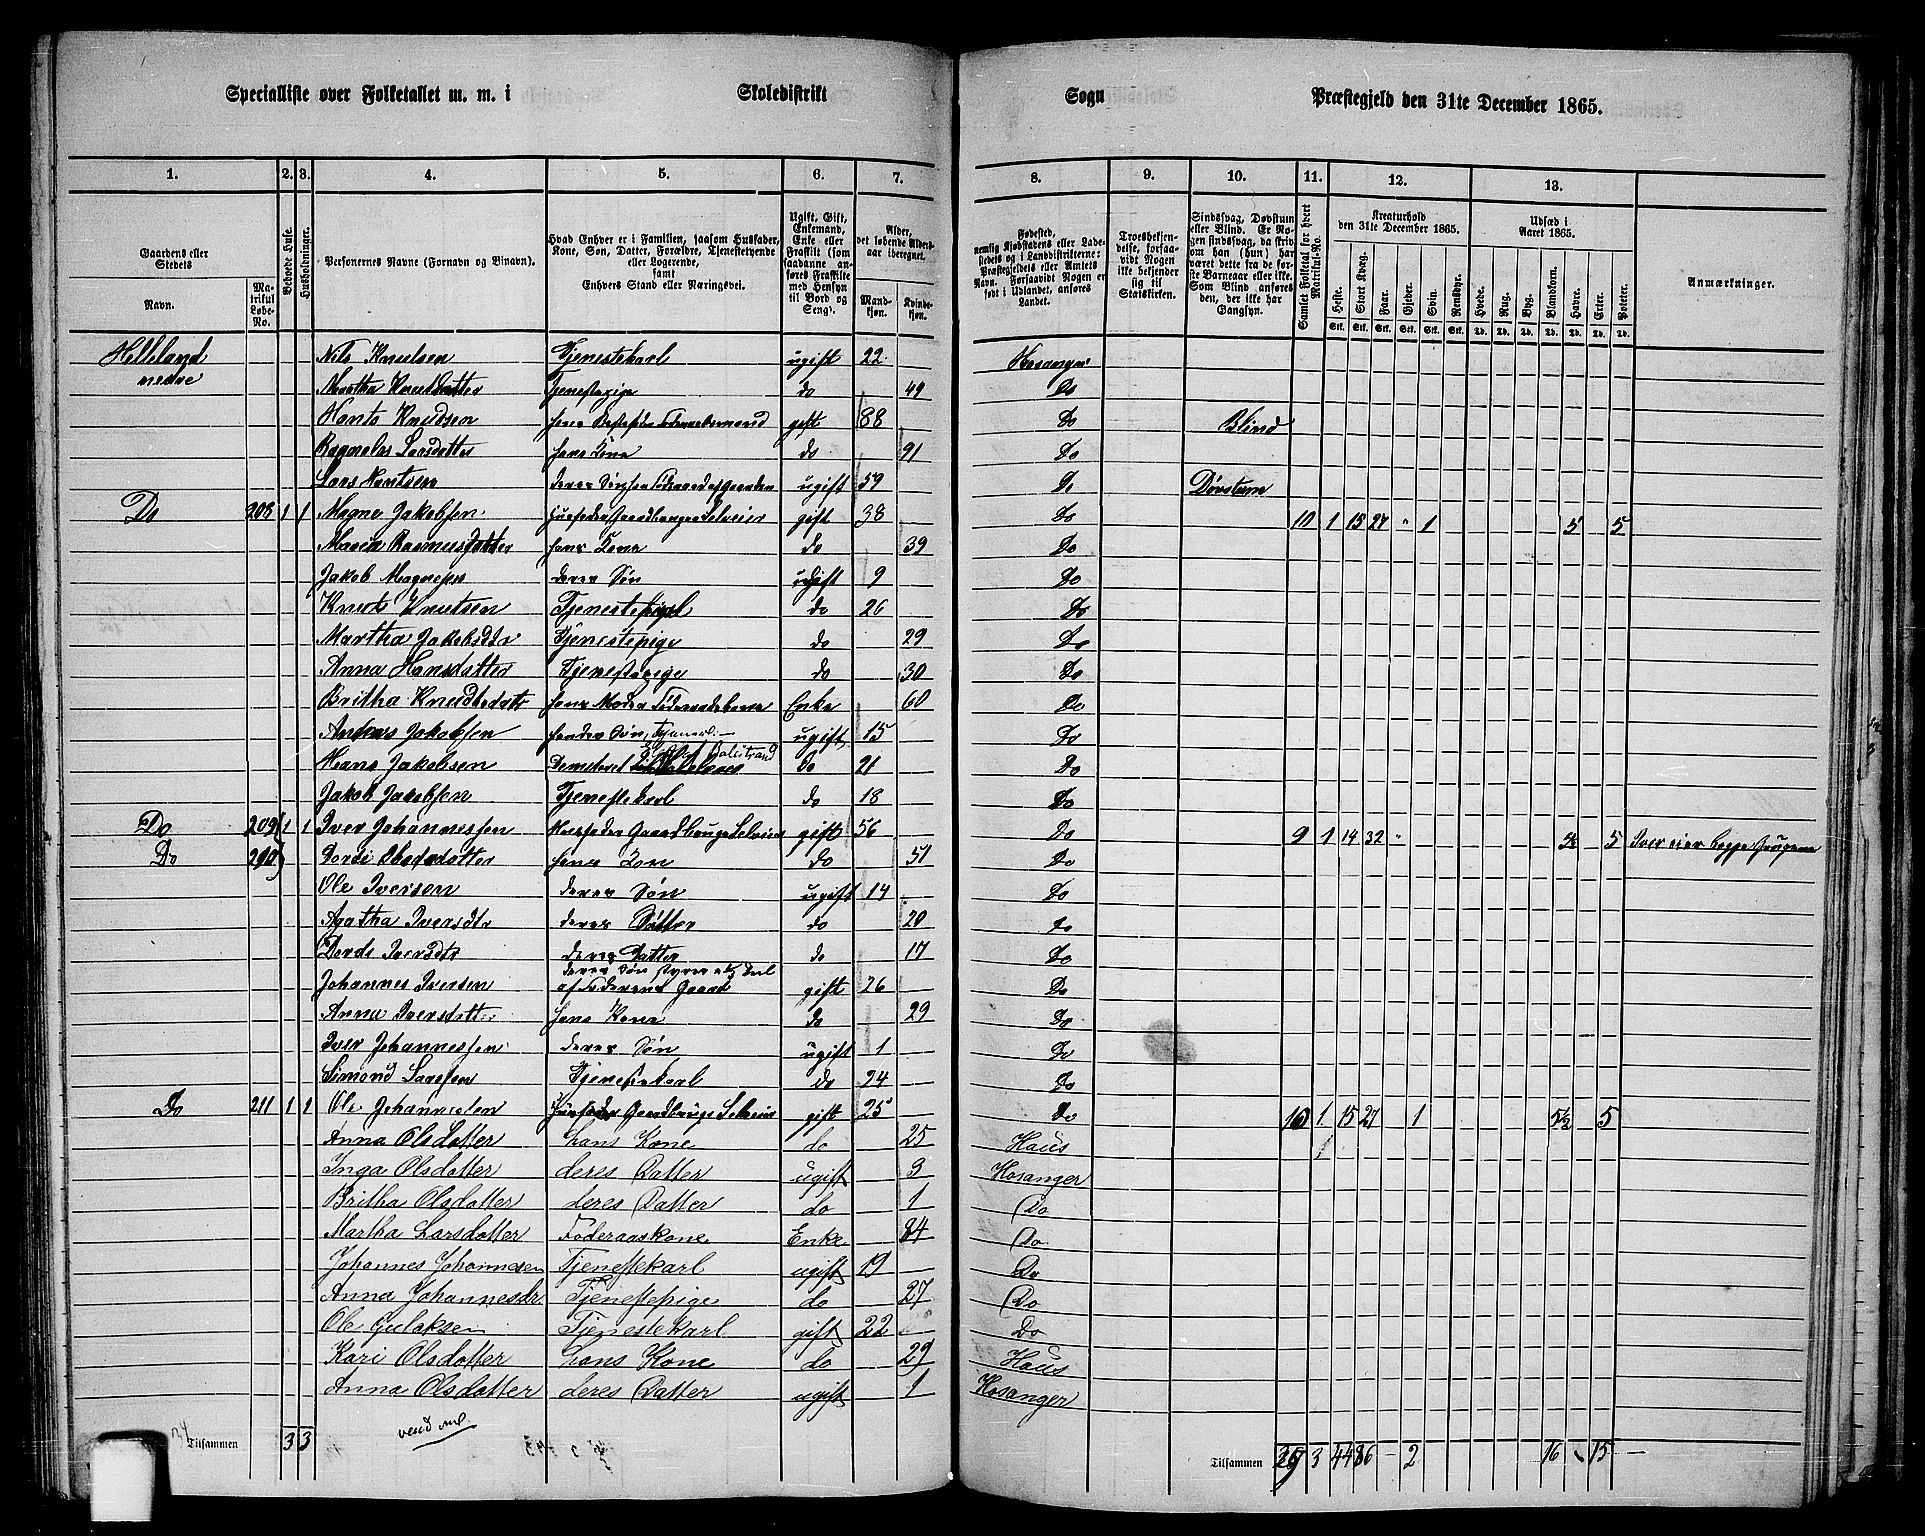 Specialliste over Folketallet m. m. i Skoledistrikt Sogn Præstegjeld den 31te December 1865.
1. 2. 3. 4. 5. 6. 7. 8. 9. 10. 11. 12. 13.
Gaardens eller Stedets
Navn.
Matrikul Løbe-No.
Beboede Huse.
Husholdninger.
Personernes Navne (Fornavn og Binavn).
Hvad Enhver er i Familien, saasom Husfader, Kone, Søn, Datter, Forældre, Tjenestetyende eller Logerende,
samt
Enhvers Stand eller Næringsvei.
Ugift, Gift, Enkemand, Enke eller Fraskilt (som saadanne anføres Fraskilte med Hensyn til Bord og Seng).
Alder, det løbende Aldersaar iberegnet.
Mandkjøn. Kvindekjøn.
Fødested, nemlig Kjøbstadens eller Ladestedets og i Landdistrikterne: Præstegjeldets eller Amtets Navn. Forsaavidt Nogen er født i Udlandet, anføres Landet.
Troesbekjendelse, forsaavidt Nogen ikke bekjender sig til Statskirken.
Sindssvag, Døvstum eller Blind. Er Nogen sindssvag, da skrives om han (hun) har været dette fra de første Barneaar eller ikke. Som Blind anføres den, der ikke har Gangsyn.
Samlet Folketal for hvert Matrikul-No.
Kreaturhold den 31te December 1865.
Heste. Stort Kvæg. Faar. Gjeder. Svin. Rensdyr.
Udsæd i Aaret 1865.
Hvede. Rug. Byg. Blandkorn. Havre. Erter. Poteter.
Anmærkninger.
Helleland Nils Knutsen Tjenestekarl ugift 22 Hosanger
nedre Martha Knutsdatter Tjenestepige do 49 Do
Knudsen gift 88 Do Blind
Larsdatter hans Kone do 91 Do
Lars ugift 59 Do Døvstum
Do 208 1 1 Magne Jakobsen Husfader Gaardbruger Selveier gift 38 Do 10 1 15 27 " 1 5 5
Rasmusdatter hans Kone do 39 Do
Jakob Magnesen deres Søn ugift 9 Do
Knut Knutsen do 26 Do
Martha Jakobsdtr Tjenestepige do 29 Do
Anna Hansdatter Tjenestepige do 30 Do
Britha Knudtsdatr hans Moder Enke 60 Do
Anders Jakobsen hendes Søn, ugift 15 Do
Hans Jakobsen do 21 Do
Jakob Jakobsen Tjenestekarl do 18 Do
Do 209 1 1 Iver Johannessen Husfader Gaardbruger Selveier gift 56 Do 9 1 14 32 " 5
Do 210 hans Kone do 51 Do
Ole Iversen deres Søn ugift 14 Do
Agatha Iversdtr deres Datter do 20 Do
Iversdtr deres Datter do 17 Do
Johannes Iversen deres Søn styrer af Faderens Gaard gift 26 Do
Anna Iversdatter hans Kone do 29 Do
Iver Johannessen deres Søn ugift 1 Do
Simond Larssen Tjenestekarl do 24 Do
Do 211 1 1 Ole Johannessen Husfader Gaardbruger Selveier gift 25 Do 10 1 15 27 1 5½ 5
Anna Olsdatter hans Kone do 25 Haus
Inga Olsdatter deres Datter ugift 3 Hosanger
Britha Olsdatter deres Datter do 1 Do
Martha Larsdatter Føderaadskone Enke 84 Do
Johannes Johannesen Tjenestekarl ugift 19 Do
Anna Johannesdr. Tjenestepige do 27 Do
Ole Gulaksen Tjenestekarl gift 22 Do
Kari Olsdatter hans Kone do 29 Haus
Anna Olsdatter deres Datter ugift 1 Hosanger
vend om.
Tilsammen 3 3 Tilsammen 3 44 86 - 2 16 15